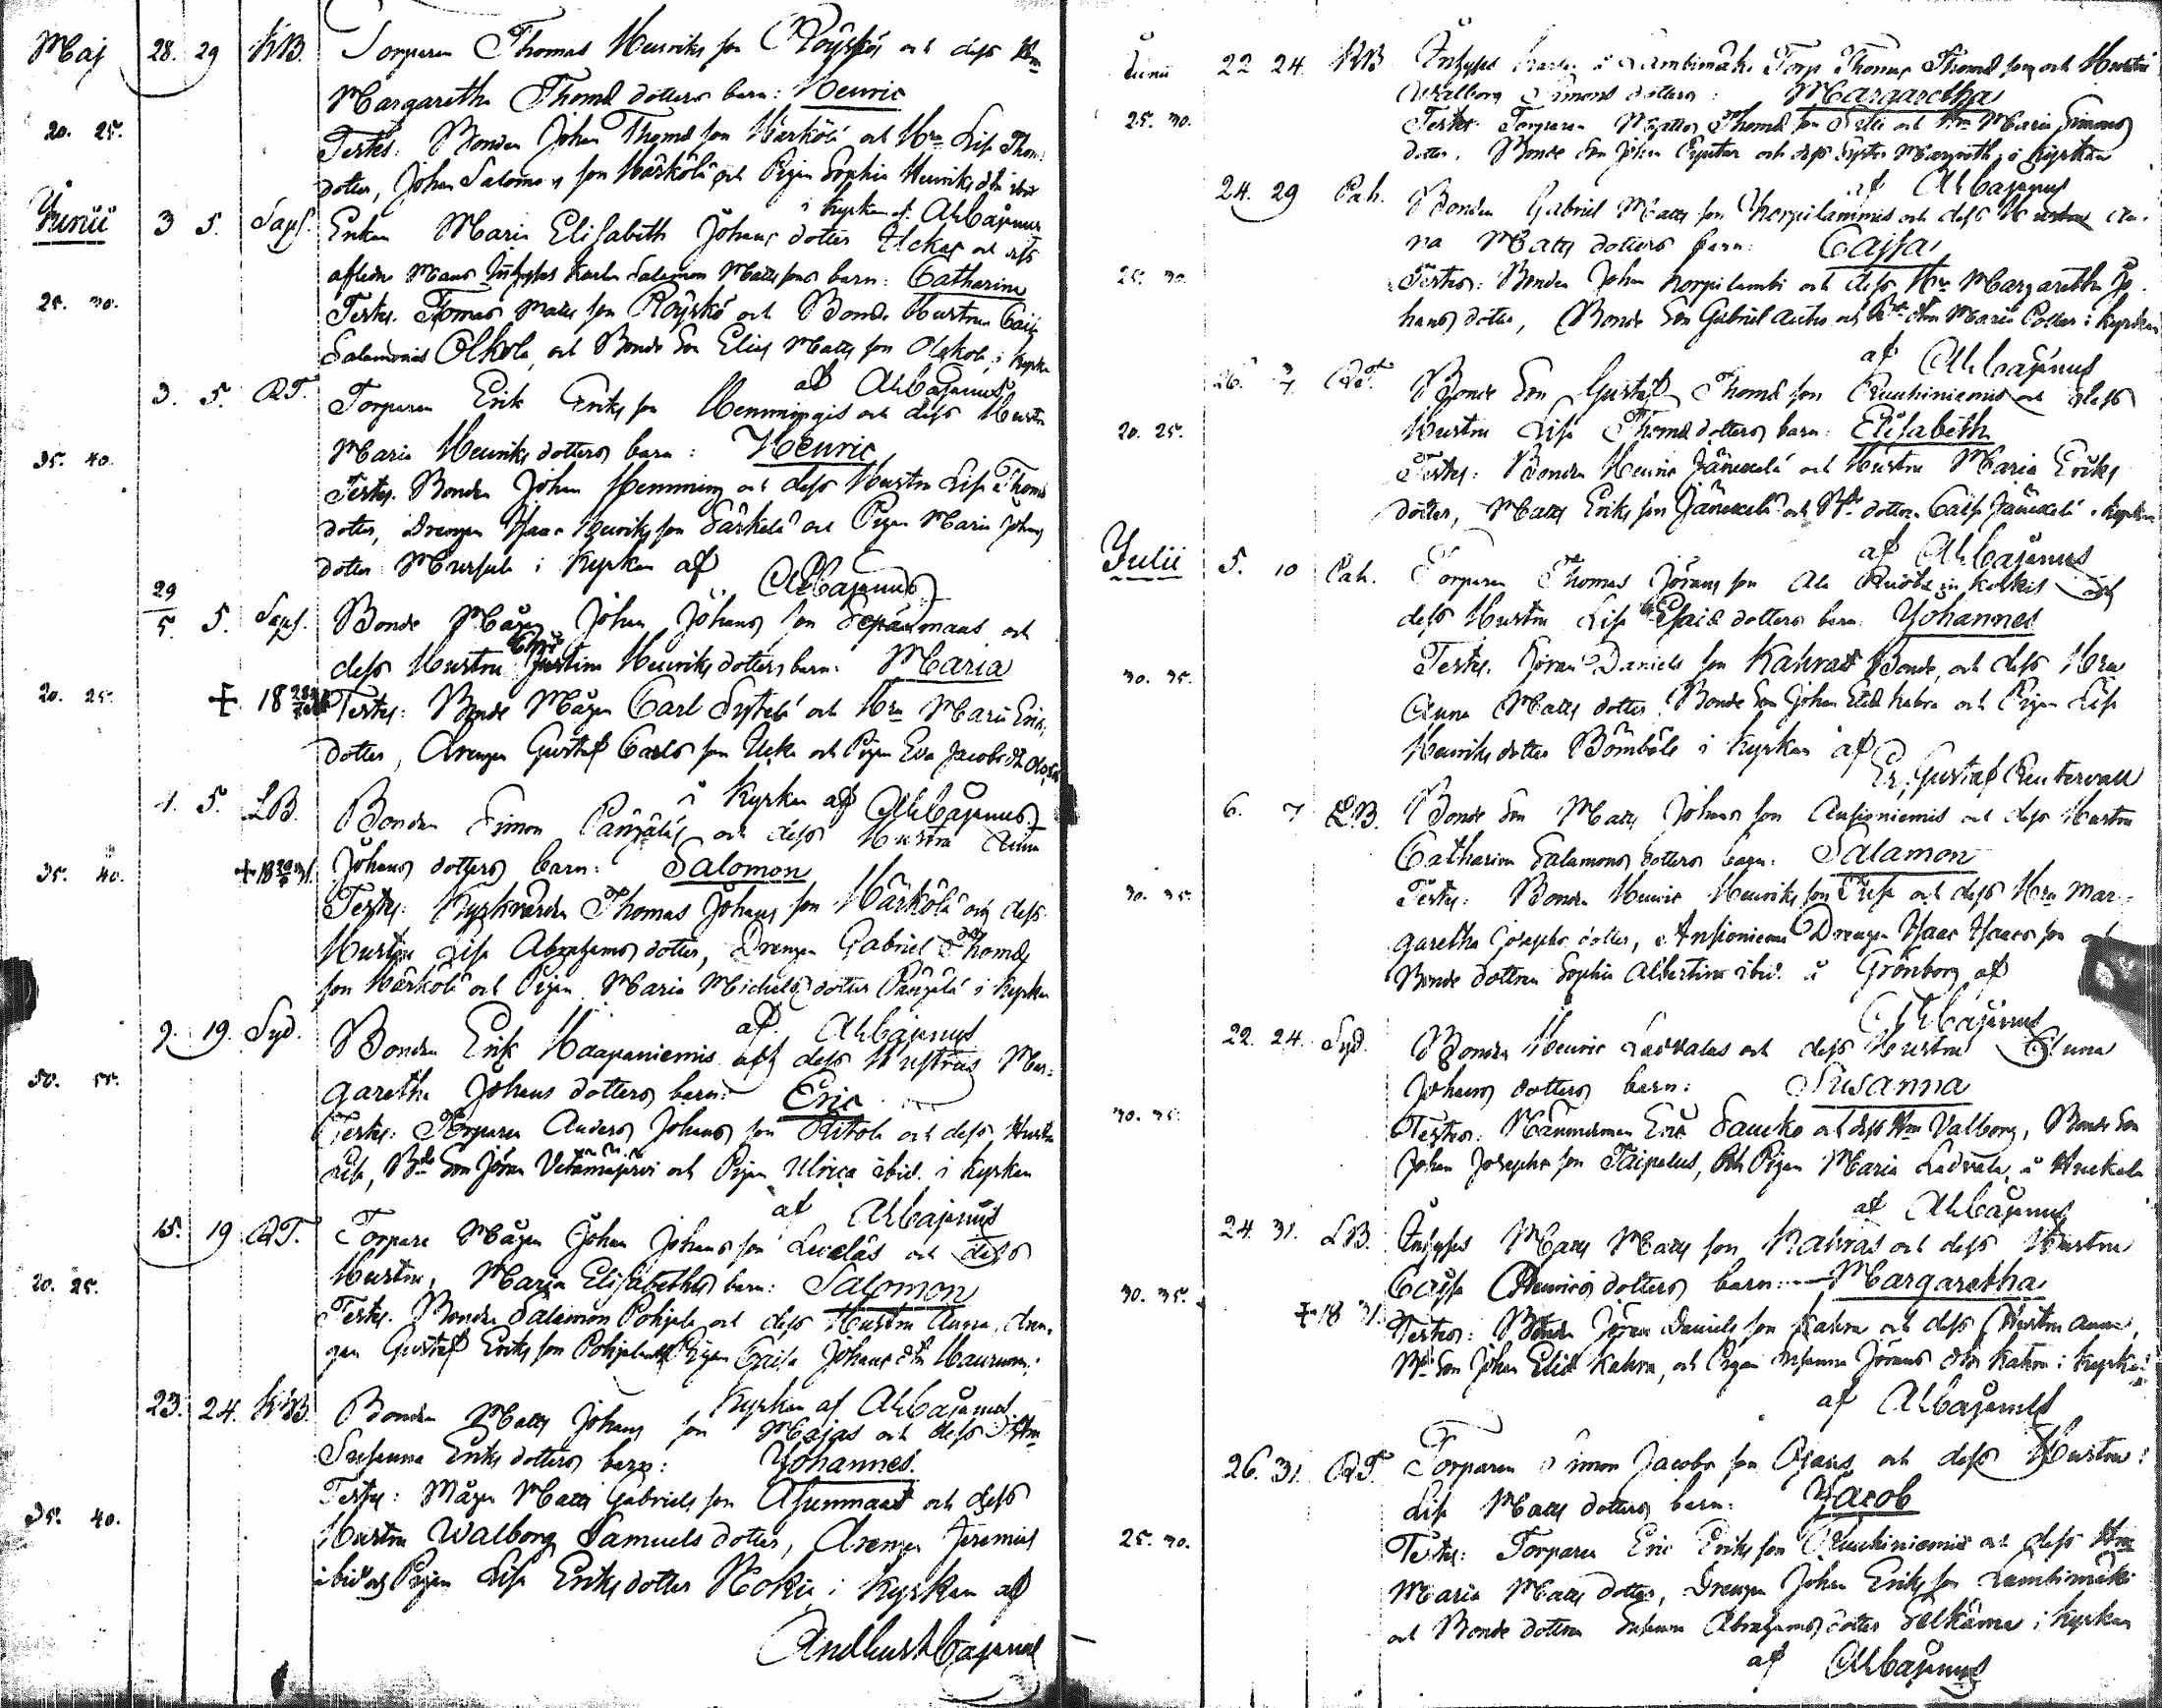 Maj 28. 29 KB. Torparen Thomas Henriks son Röyskös och dess Hu
Margaretha Thomæ dotters barn: Henric
20. 25. Testes: Bonden Johan Thomæ son Härkölä och Hru Lisa Thom:
dotter, Johan Salomons son Härkölä och Pigan Sophia Henriks dtr ibid
i kyrkan af AhCajanus
Junii 3 5. Saps. Enkan Maria Elisabeth Johans dotter Uckas och dess
aflidne Mans Inhyses Karlen Salomon Matts sons barn: Catharina
25. 30. Testes. Tomas Matts son Röyskö och Bonde Hustrun Caisa
Salamonis Olkola, och Bonde Son Elias Matts son Olckola, i kyrkan
af AhCajanus
3. 5. RT. Torparen Erik Eriks son Hemmingis och dess Hustru
Maria Henriks dotters barn: Henric
35. 40. Testes. Bonden Johan Hemming och dess Hustru Lisa Thomæ
dotter, Drengen Isaac Henriks son Särkelä och Pigan Maria Johans
dotter i Kyrkan af
AhCajanus
29/5. 5. Saps. Bonde Mågen Johan Johans son Sepänmaas och
dess Hustru Justina Henriks dotters barn: Maria
20. 25. + 18 Testes: Bonde Mågen Carl Sytelä och Hru Maria Erics
dotter, Drengen Gustaf Carls son Ucka och Pigan Eva Jacobs dtr
i Kyrkan af AhCajanus
4. 5. LB. Bonden Simon Pängäläs och dess Hustru Anna
35. 40. + 18 Johans dotters barn: Salomon
Testes: Kyrkvärden Thomas Johans son Härkölä och dess
Hustru Lisa Abrahams dotter, Drengen Gabriel Thomæ
son Härkölä och Pigan Maria Michels dotter Pängälä i kyrkan
af AhCajanus
9. 19. Syd. Bonden Erik Haapaniemis och dess Hustrus Mar:
50. 55. garetha Johans dotters barn: Eric
Testes: Torparen Anders Johans son Ritola och dess Hustru
Lisa, Bde Son Jöran Vetämäjervi och Pigan Ulrica ibid. i kyrkan
af AhCajanus
15. 19 RT. Torpare Mågen Johan Johans son Leveläs och dess
20. 25. Hustru, Maria Elisabeths barn: Salomon
Testes. Bonden Salamon Pohjala och dess Hustru Anna, Dren-
gen Gustaf Eriks son Pohjala och Pigan Caisa Johans dtr
Kyrkan af AhCajanus
23. 24. KB. Bonden Matts Johans son Majas och dess Hru
Susanna Eriks dotters barn: Johannes.
35. 40. Testes: Mågen Matts Gabriels son Asunmaa och dess
Hustru Walborg Samuels dotter, Drengen Jeremias
ibid och Pigan Lisa Eriks dotter Nokia i Kyrkan af
AndhurhCajanus
Junii 22 24. KB Inhyses karlen i Lambimäki Torp Thomas Thomæ son och Hustru
Walborg Simons dotters: Margaretha
25. 30. Testes. Torparen Matts Thomæ son och Hru Maria Simons
dotter. Bonde Son Johan och dess Syster Margareth, i kyrkan
af AhCajanus
24. 29 Pah. Bonden Gabriel Matts son Korpilammis och dess Hustrus An-
na Matts dotters barn: Cajsa,
25. 30. Testes: Bonden Johan Korpilambi och dess Hru Margaretha Jo-
hans dotter, Bonde Son Gabriel Antio och Bde dtr Maria i kyrkan
af AhCajanus
26. 7 RT. Bonde Son Gustaf Thomæ son Ruuhiniemis och dess
20. 25. Hustru Lisa Thomæ dotters barn: Elisabeth
Testes: Bonden Henric Jänexelä och Hustru Maria Eriks
dotter, Matts Eriks son Jänexelä och Bde dottern Caisa Jänexelä i kyrkan
af AhCajanus
Julii 5. 10 Pah. Torparen Thomas Jörans son Ala och
dess Hustru Lisa Esaiæ dotters barn: Johannes
30. 35. Testes. Jöran Daniels son Kahra Bonde, och dess Hru
Anna Matts dotter, Bonde Son Johan Eliæ Kahra och Pigan Lisa
Henriks dotter Bömbäle i kyrkan af
Er. Gustaf Rentervall
6. 7 LB. Bonde Son Matts Johans son Ansioniemis och dess Hustru
Catharina Salamons dotters barn: Salamon
30. 35. Testes: Bonden Henric Henriks son och dess Hru Mar-
garetha Josephs dotter, Ansioniemi Drengen Isaac Isaacs son och
Bonde dottern Sophia Albertina ibid. å Grönborg af
AhCajanus
22. 24. Syd. Bonden Henric Ladvalas och dess Hustru Anna
Johans dotters barn: Susanna
30. 35. Testes: Nämndeman Eric Saucko och dess Hru Valborg, Bonde Son
Johan Josephs son Taipalus, och Pigan Maria Ladvala, å
af AhCajanus
24. 31. LB. Inhyses Matts Matts son Kahras och dess Hustru
30. 35. Cajsa Henrics dotters barn: Margaretha
+ 18 31. Testes: Bonden Jöran Daniels son Kahra och dess Hustru Anna,
Bde Son Johan Eliæ Kahra, och Pigan Susanna Jörans dtr Kahra i kyrkan
af AhCajanus
26. 31. RT. Torparen Simon Jacobs son Ojans och dess Hustru:
Lisa Matts dotters barn: Jacob
25. 30. Testes: Torparen Eric Eriks son Ruuhiniemis och dess Hru
Maria Matts dotter, Drengen Johan Eriks son Lambimäki
och Bonde dottern Susanna Abrahams dotter Selkämä i kyrkan
af AhCajanus